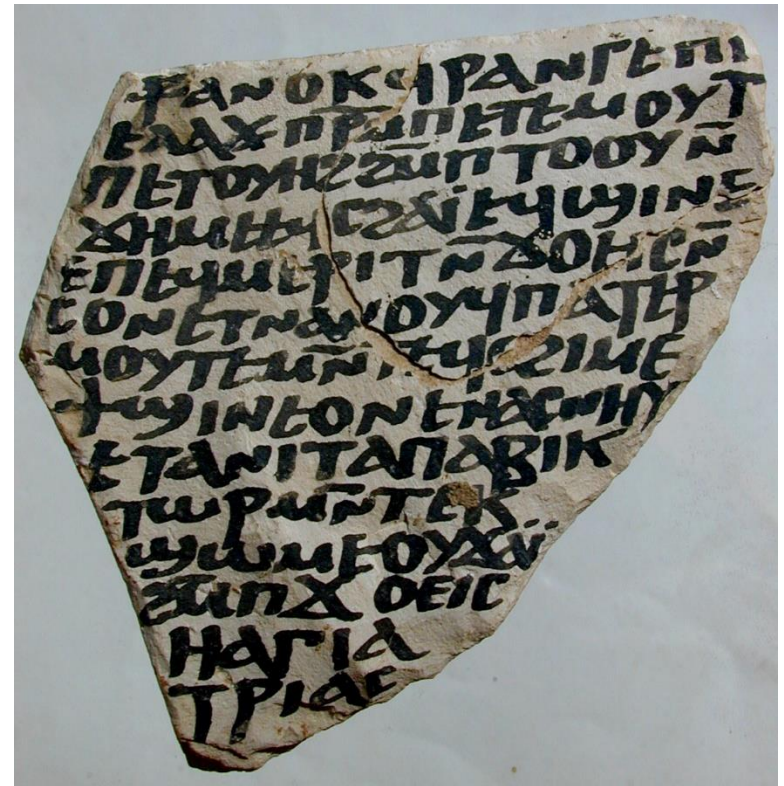 ϯ ⲁⲛⲟⲕ ϥⲣⲁⲛⲅⲉ ⲡⲓ
ⲉⲗⲁⲭ ⲡⲣⲙ̄ⲡⲉⲧⲉⲙⲟⲩⲧ
ⲡⲉⲧⲟⲩⲏϩ ϩⲙ̄ ⲡⲧⲟⲟⲩ ⲛ̄
ϫⲏⲙⲉ ⲉϥⲥϩⲁⲓ̈ ⲉϥϣⲓⲛⲉ
ⲉⲡⲉϥⲙⲉⲣⲓⲧ ⲛ̄ϫⲟⲉⲓⲥ ⲛ̄
ⲥⲟⲛ ⲉⲧⲛⲁⲛⲟⲩϥ ⲡⲁⲧⲉⲣ
ⲙⲟⲩⲧⲉ ⲙⲛ̄ ⲧⲉϥⲥϩⲓⲙⲉ
ϯϣⲓⲛⲉ ⲟⲛ ⲉⲛⲁⲥⲛⲏⲩ
ⲉⲧⲁⲛⲓⲧⲁ ⲡⲁⲃⲓⲕ
ⲧⲱⲣ ⲙⲛ̄ ⲧⲉⲕ
ϣⲱⲙⲉ ⲟⲩϫⲁⲓ̈
ϩⲙ̄ ⲡϫⲟⲉⲓⲥ
ⲏ ⲁⲅⲓⲁ
ⲧⲣⲓⲁⲥ